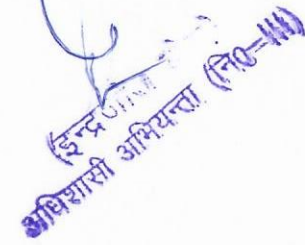 (इन्द्र
अधिशासी अभियन्ता (नि०-III)